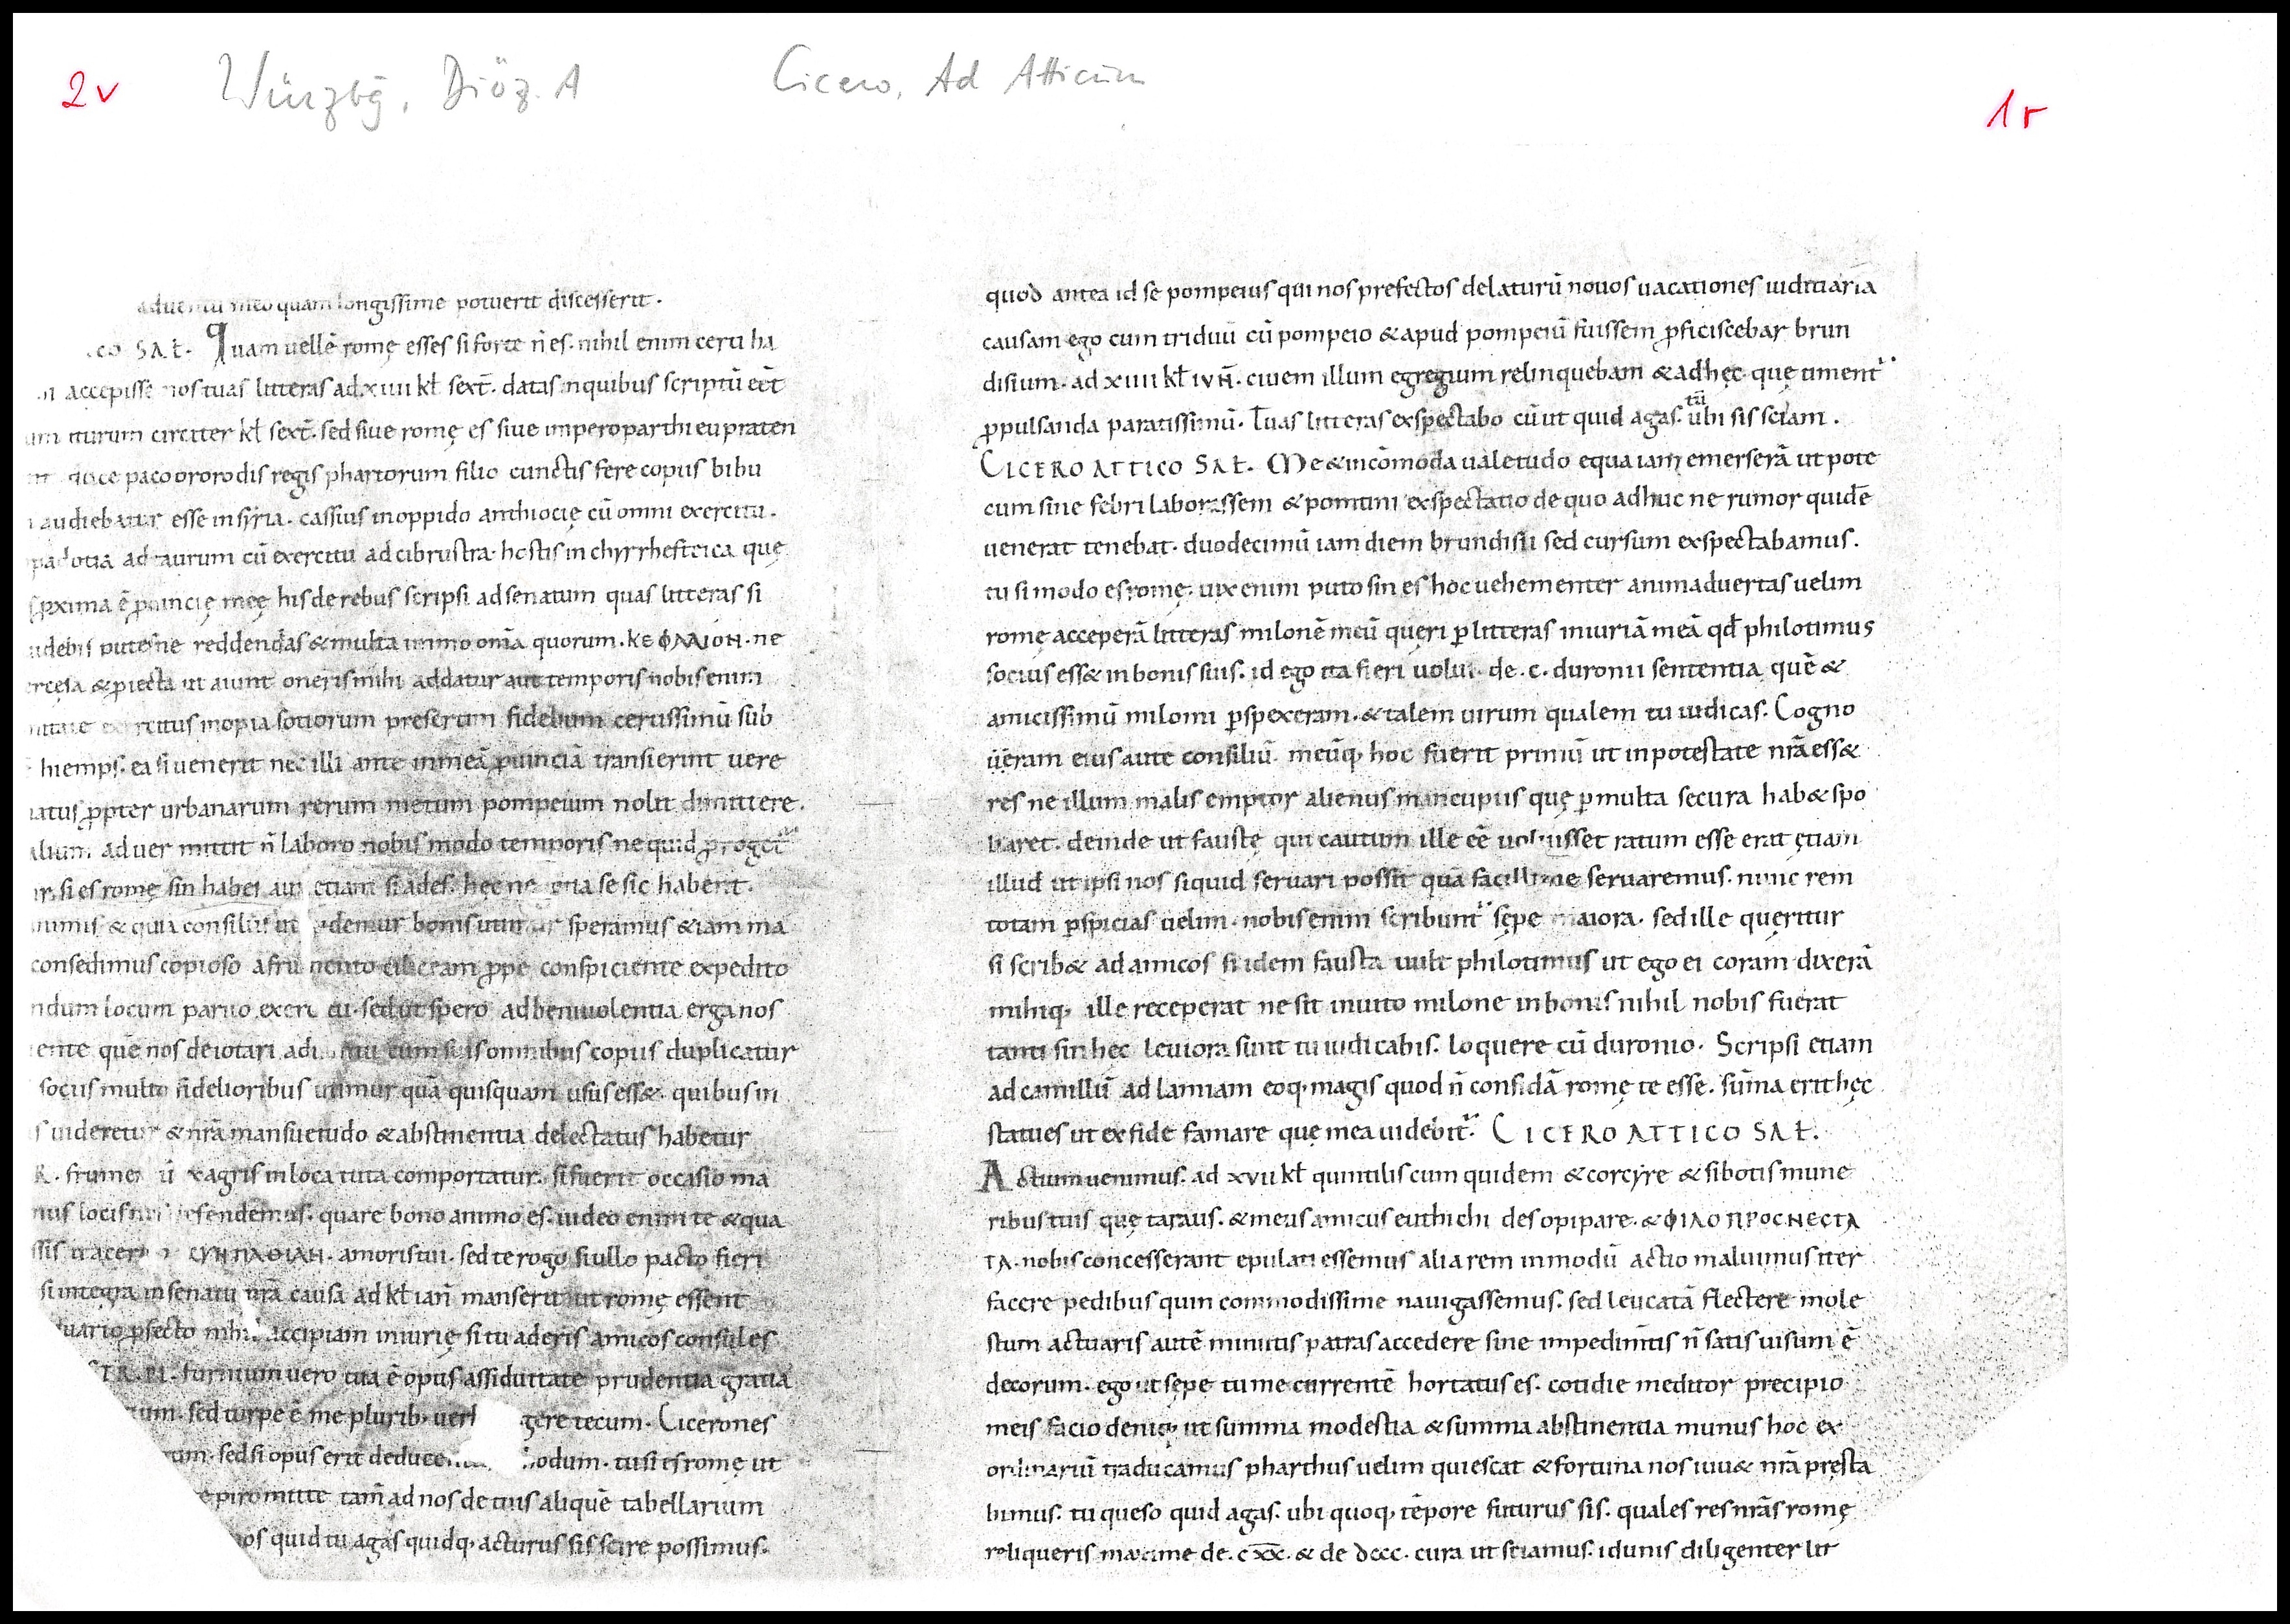 2v Würzbg, Diöz. A Cicero, Ad Atticum 1r
aduentu meo quam longissime potuerit discesserit.
co SAL̄. Quam uellē romę esses si forte n̄ es. nihil enim certi ha
accepisse nos tuas litteras ad. xiiii kl̄ sext̄. datas inquibus scriptū eēt
um iturum circiter kl̄ sext̄. sed siue romę es siue imperoparthi eupraten
duce pacoororodis regis phartorum filio cunctis fere copiis bibu
audiebatur esse insyria. cassius inoppido anthiocię cū omni exercitu.
padotia ad taurum cū exercitu ad cibrustra. hostis in chyrrhestrica quę
ꝓxima ē ꝓuincię meę his de rebus scripsi ad senatum quas litteras si
uidebis putesne reddendas & multa immo om̄ia quorum. ΚΕΦΛΛΙΟΝ. ne
ercesa & ꝓiecta ut aiunt oneris mihi addatur aut temporis nobis enim
exercitus inopia sotiorum presertim fidelium certissimū sub
hiemps. ea si uenerit nec illi ante inmeā ꝓuinciā transierint uere
natus ꝓpter urbanarum rerum metum pompeium nolit dimittere.
alium ad uer mittit n̄ laboro nobis modo temporis ne quid ꝓroget
si es romę sin habes aut etiam si ades. hęc ne se sic habent.
nimis & quia consiliis ut uidemur bonis utimur speramus & iam ma
consedimus copioso a frumento ciliceam ꝓpe conspiciente expedito
ndum locum paruo exercitu. sed ut spero ad beniuolentia erga nos
ente quē nos deiotari aduentu cum suis omnibus copiis duplicatur
socus multo fidelioribus utimur quā quisquam usus ess&. quibus in
s uideretur & nr̄a mansuetudo & abstinentia delectatus habetur
R. frumentū xagris inloca tuta comportatur. si fuerit occasio ma
nus locis nos defendemus. quare bono animo es. uideo enim te & qua
ssis CYΗΠΛΘΙΑΗ. amoris tui. sed te rogo si ullo pacto fieri
si integra in senatu nr̄a causa ad kl̄ ian̄ manserit ut romę essent
ꝓfecto nihil accipiam iniurię si tu aderis amicos consules
TR. PL. furnium uero tua ē opus assiduitate prudentia gratia
sed turpe ē me pluribꝫ uerbis agere tecum. Cicerones
sed si opus erit deducentur odum. tu si es romę ut
piromitte tam̄ ad nos de tuis aliquē tabellarium
nos quid tu agas quidqꝫ acturus sis scire possimus.
quod antea id se pompeius qui nos prefectos delaturū nouos uacationes iuditiaria
causam ego cum triduū cū pompeio & apud pompeiū fuissem ꝓficiscebar brun
disium. ad xiiii kl̄ IVN̄. ciuem illum egregium relinquebam & adhęc quę timent᷑
ꝓpulsanda paratissimū. Tuas litteras exspectabo cū ut quid agas. tū ubi sis sciam.
CICERO ATTICO SAL̄. Me & incōmoda ualetudo e qua iam emerserā ut pote
cum sine febri laborassem & pontini exspectatio de quo adhuc ne rumor quidē
uenerat tenebat. duodecimū iam diem brundisii sed cursum exspectabamus.
tu si modo es romę. uix enim puto sin es hoc uehementer animaduertas uelim
romę acceperā litteras milonē meū queri ꝑ litteras iniuriā meā qd̄ philotimus
socius ess& in bonis suis. id ego ita fieri uolui de. c. duronii sententia quē &
amicissimū miloni ꝑspexeram. & talem uirum qualem tu iudicas. Cogno
ueram eius aute consiliū. meūqꝫ hoc fuerit primū ut in potestate nr̄a ess&
res ne illum malis emptor alienus mancupiis quę ꝑmulta secura hab& spo
liaret. deinde ut faustę qui cautum ille eē uoluisset ratum esse erat ętiam
illud ut ipsi nos siquid seruari possit quā facillime seruaremus. nunc rem
totam ꝑspicias uelim. nobis enim scribunt᷑ sępe maiora. sed ille queritur
si scrib& ad amicos si idem fausta uult philotimus ut ego ei coram dixerā
mihiqꝫ ille receperat ne sit inuito milone in bonis nihil nobis fuerat
tanti sin hęc leuiora sunt tu iudicabis. loquere cū duronio. Scripsi etiam
ad camillū ad lamiam eoqꝫ magis quod n̄ confidā romę te esse. sūma erit hęc
statues ut ex fide famare quę mea uidebit᷑. CICERO ATTICO SAL̄.
Actium uenimus. ad xvii kl̄ quintilis cum quidem & corcyre & sibotis mune
ribus tuis quę taraus. & meus amicus euthichi des opipare. & ΦΙΛΟΠΡΟCΗΕCΤΑ
ΤΑ. nobis concesserant epulati essemus alia rem in modū actio maluimus iter
facere pedibus quin commodissime nauigassemus. sed leucatā flectere mole
stum actuaris autē minutis patras accedere sine impedimtis n̄ satis uisum ē
decorum. ego ut sępe tu me currentē hortatus es. cotidie meditor precipio
meis facio deniqꝫ ut summa modestia & summa abstinentia munus hoc ex
ordinariū traducamus pharthus uelim quiescat & fortuna nos iuu& nr̄a pręsta
bimus. tu queso quid agas. ubi quoqꝫ tēpore futurus sis. quales res nr̄as romę
reliqueris maxime de. cxx̄. & de dccc. cura ut sciamus. id unis diligenter lit